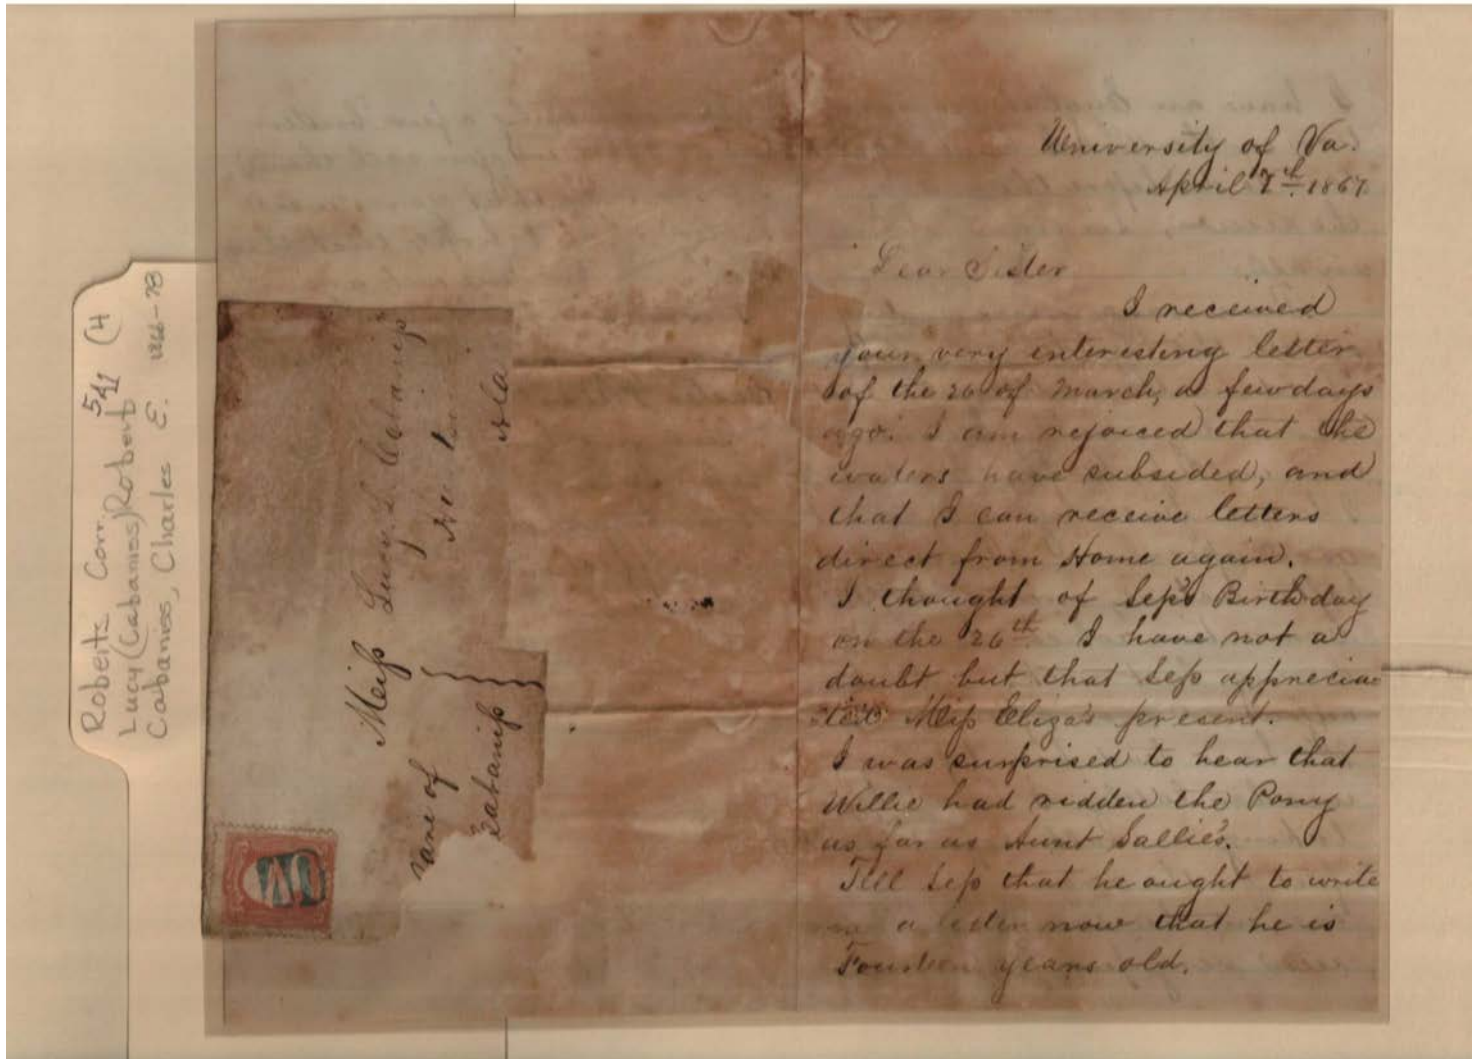 Roberts Corr. 541 (4
Lucy (Cabaniss) Robert
Cabaniss, Charles E. 1866-78
Miss Lucy S. Cabaniss
Ala
Care of
Cabaniss
University of Va.
April 7th 1867
Dear Sister
I received
your very interesting letter
of the 26 of March, a few days
ago. I am rejoiced that the
waters have subsided, and
that I can receive letters
direct from Home again.
I thought of Sep's Birthday
on the 26th. I have not a
doubt but that Sep apprecia
ted Miss Eliza's present.
I was surprised to hear that
Willie had ridden the Pony
as far as Aunt Sallie's.
Tell Sep that he ought to write
a now that he is
Fourteen years old.